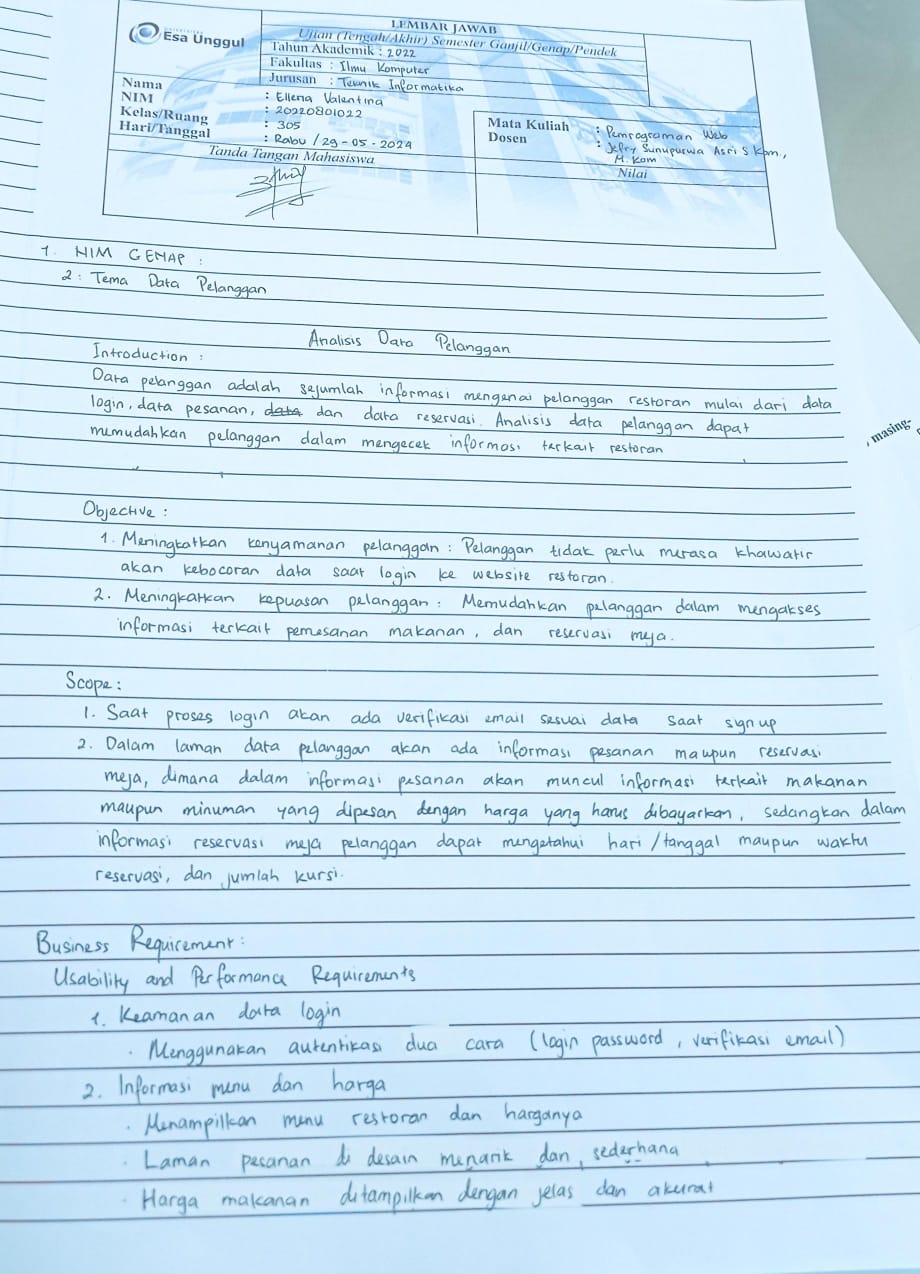 UNIVERSITAS
Esa Unggul
LEMBAR JAWAB
Ujian (Tengah/Akhir) Semester Ganjil/Genap/Pendek
Tahun Akademik : 2022
Fakultas : Ilmu Komputer
Jurusan : Teknik Informatika
Nama : Ellena Valentina
NIM : 20220801022
Kelas/Ruang : 305
Hari/Tanggal : Rabu / 29-05-2024
Mata Kuliah : Pemrograman Web
Dosen : Jefry Sunupurwa Asri S.Kom.,
M.Kom
Tanda Tangan Mahasiswa
Nilai
1. NIM GENAP :
2. Tema Data Pelanggan
Analisis Data Pelanggan
Introduction :
Data pelanggan adalah sejumlah informasi mengenai pelanggan restoran mulai dari data
login, data pesanan, data dan data reservasi. Analisis data pelanggan dapat
memudahkan pelanggan dalam mengecek informasi terkait restoran
, masing-
Objective :
1. Meningkatkan kenyamanan pelanggan : Pelanggan tidak perlu merasa khawatir
akan kebocoran data saat login ke website restoran.
2. Meningkatkan kepuasan pelanggan : Memudahkan pelanggan dalam mengakses
informasi terkait pemesanan makanan, dan reservasi meja.
Scope :
1. Saat proses login akan ada verifikasi email sesuai data saat sign up
2. Dalam laman data pelanggan akan ada informasi pesanan maupun reservasi
meja, dimana dalam informasi pesanan akan muncul informasi terkait makanan
maupun minuman yang dipesan dengan harga yang harus dibayarkan, sedangkan dalam
informasi reservasi meja pelanggan dapat mengetahui hari/tanggal maupun waktu
reservasi, dan jumlah kursi.
Business Requirement :
Usability and Performance Requirements
1. Keamanan data login
· Menggunakan autentikasi dua cara (login password, verifikasi email)
2. Informasi menu dan harga
· Menampilkan menu restoran dan harganya
· Laman pesanan di desain menarik dan sederhana
· Harga makanan ditampilkan dengan jelas dan akurat